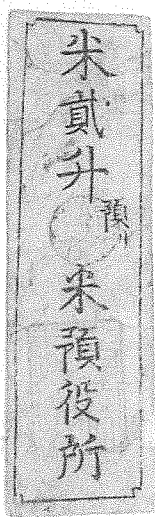 米貳升
預リ
米預役所